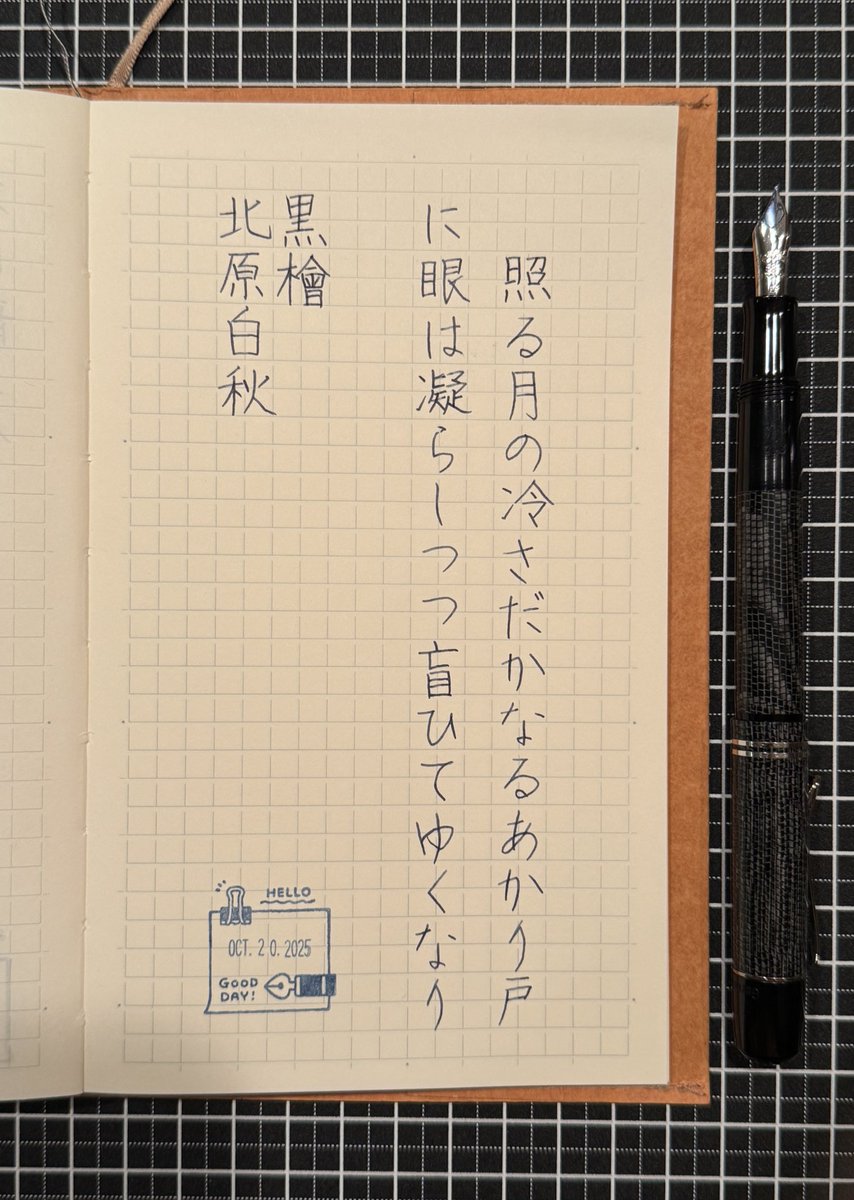 照る月の冷さだかなるあかり戸
に眼は凝らしつつ盲ひてゆくなり
黒檜
北原白秋
HELLO
OCT. 20.2025
GOOD
DAY!